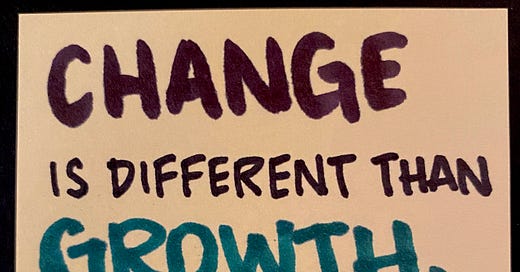 CHANGE
IS DIFFERENT THAN
GROWTH.